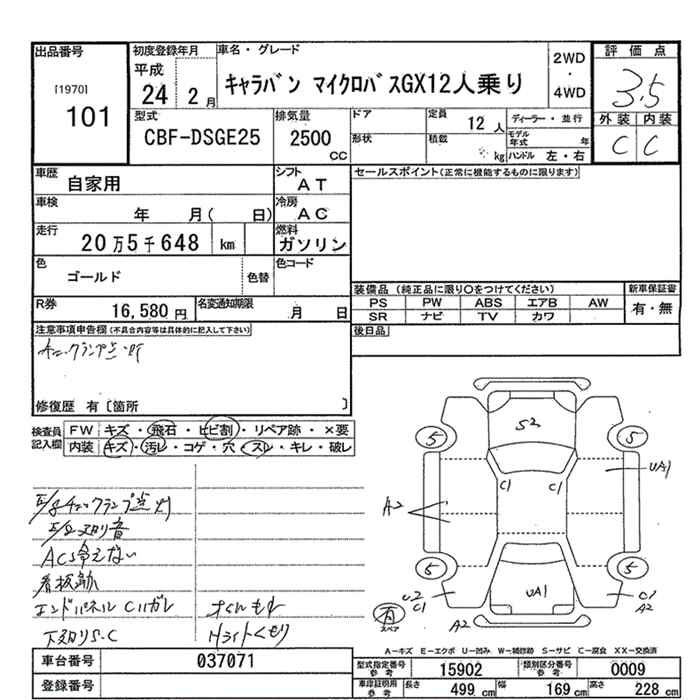 出品番号 初度登録年月 車名・グレード 評価点
[1970] 平成 2WD
101 24 2月 キャラバン マイクロバスGX12人乗り ・ 3.5
4WD
型式 排気量 ドア 定員 ディーラー・並行 外装 内装
CBF-DSGE25 2500 12人 モデル年式 年 C C
CC 形状 積載 kg ハンドル 左・右
車歴 自家用 シフト AT セールスポイント(正常に機能するものに限ります)
車検 年 月( 日) 冷房 AC
走行 20万5千648 km 燃料 ガソリン
色 ゴールド 色替 色コード
装備品 (純正品に限り○をつけてください) 新車保証書
PS PW ABS エアB AW 有・無
SR ナビ TV カワ
R券 16,580円 名変通知期限 月 日
後日品
注意事項申告欄(不具合内容等は具体的に記入して下さい)
修復歴 有〔箇所 〕
検査員記入欄 FW キズ・飛石・ヒビ割・リペア跡・×要
内装 キズ・汚レ・コゲ・穴・スレ・キレ・破レ
S2
5 5
C1 C1 UA1
A2
5 5
UA1
U2 C1 C1 A2
有 スペア A2
E/gチェックランプ点灯
E/g 異音
ACS冷えない
看板跡
エンドパネル Cハガレ
下廻りS.C
Hライトくもり
A-キズ E-エクボ U-凹み W-補修跡 S-サビ C-腐食 XX-交換済
車台番号 037071 型式指定番号 参考 15902 類別区分番号 参考 0009
登録番号 車庫証明用 参考 長さ 499 cm 幅 169 cm 高さ 228 cm